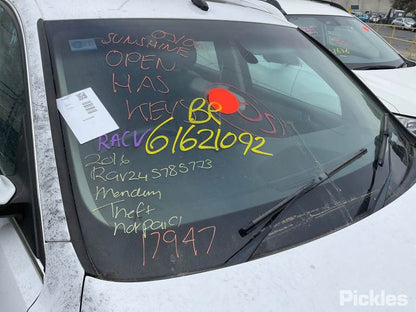 SUNSHINE
OPEN
HAS
KEYS
BR
RACV
61621092
2016
Rav245785723
Mendem
Theft
17947
Pickles